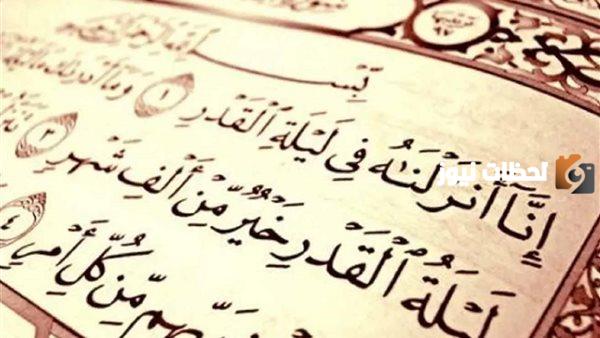 بِسْمِ ٱللَّهِ ٱلرَّحْمَٰنِ ٱلرَّحِيمِ
إِنَّآ أَنزَلْنَٰهُ فِي لَيْلَةِ ٱلْقَدْرِ ١ وَمَآ أَدْرَىٰكَ مَا
لَيْلَةُ ٱلْقَدْرِ خَيْرٌ مِّنْ أَلْفِ شَهْرٍ ٣
رَبِّهِم مِّن كُلِّ أَمْرٍ ٤
لحظات نيوز